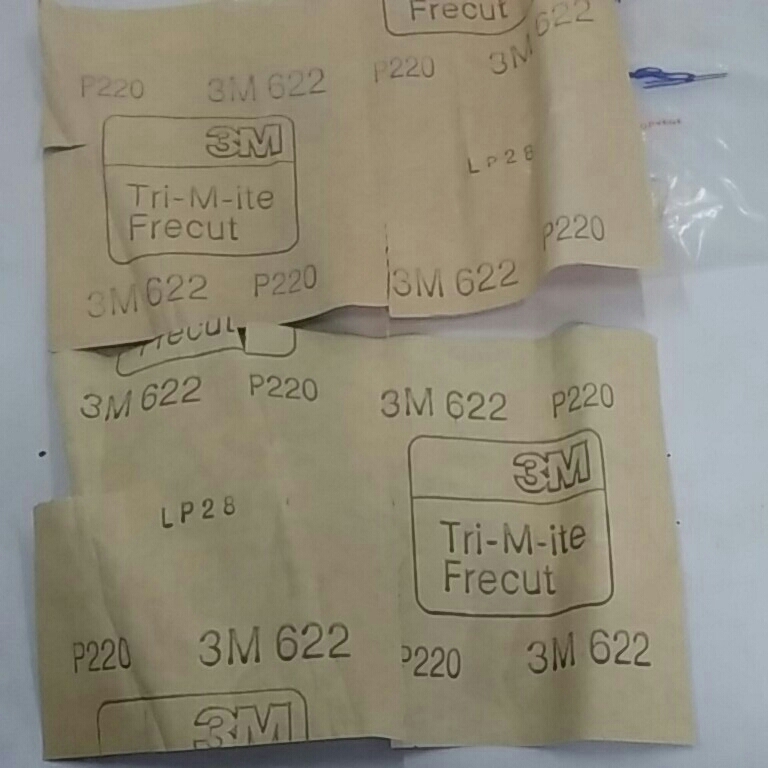 Frecut
3M 622
P220
P220
3M 622
3M
LP28
Tri-M-ite
Frecut
P220
3M 622
P220
3M 622
Frecut
3M 622
P220
3M 622
P220
3M
LP28
Tri-M-ite
Frecut
P220
3M 622
P220
3M 622
3M